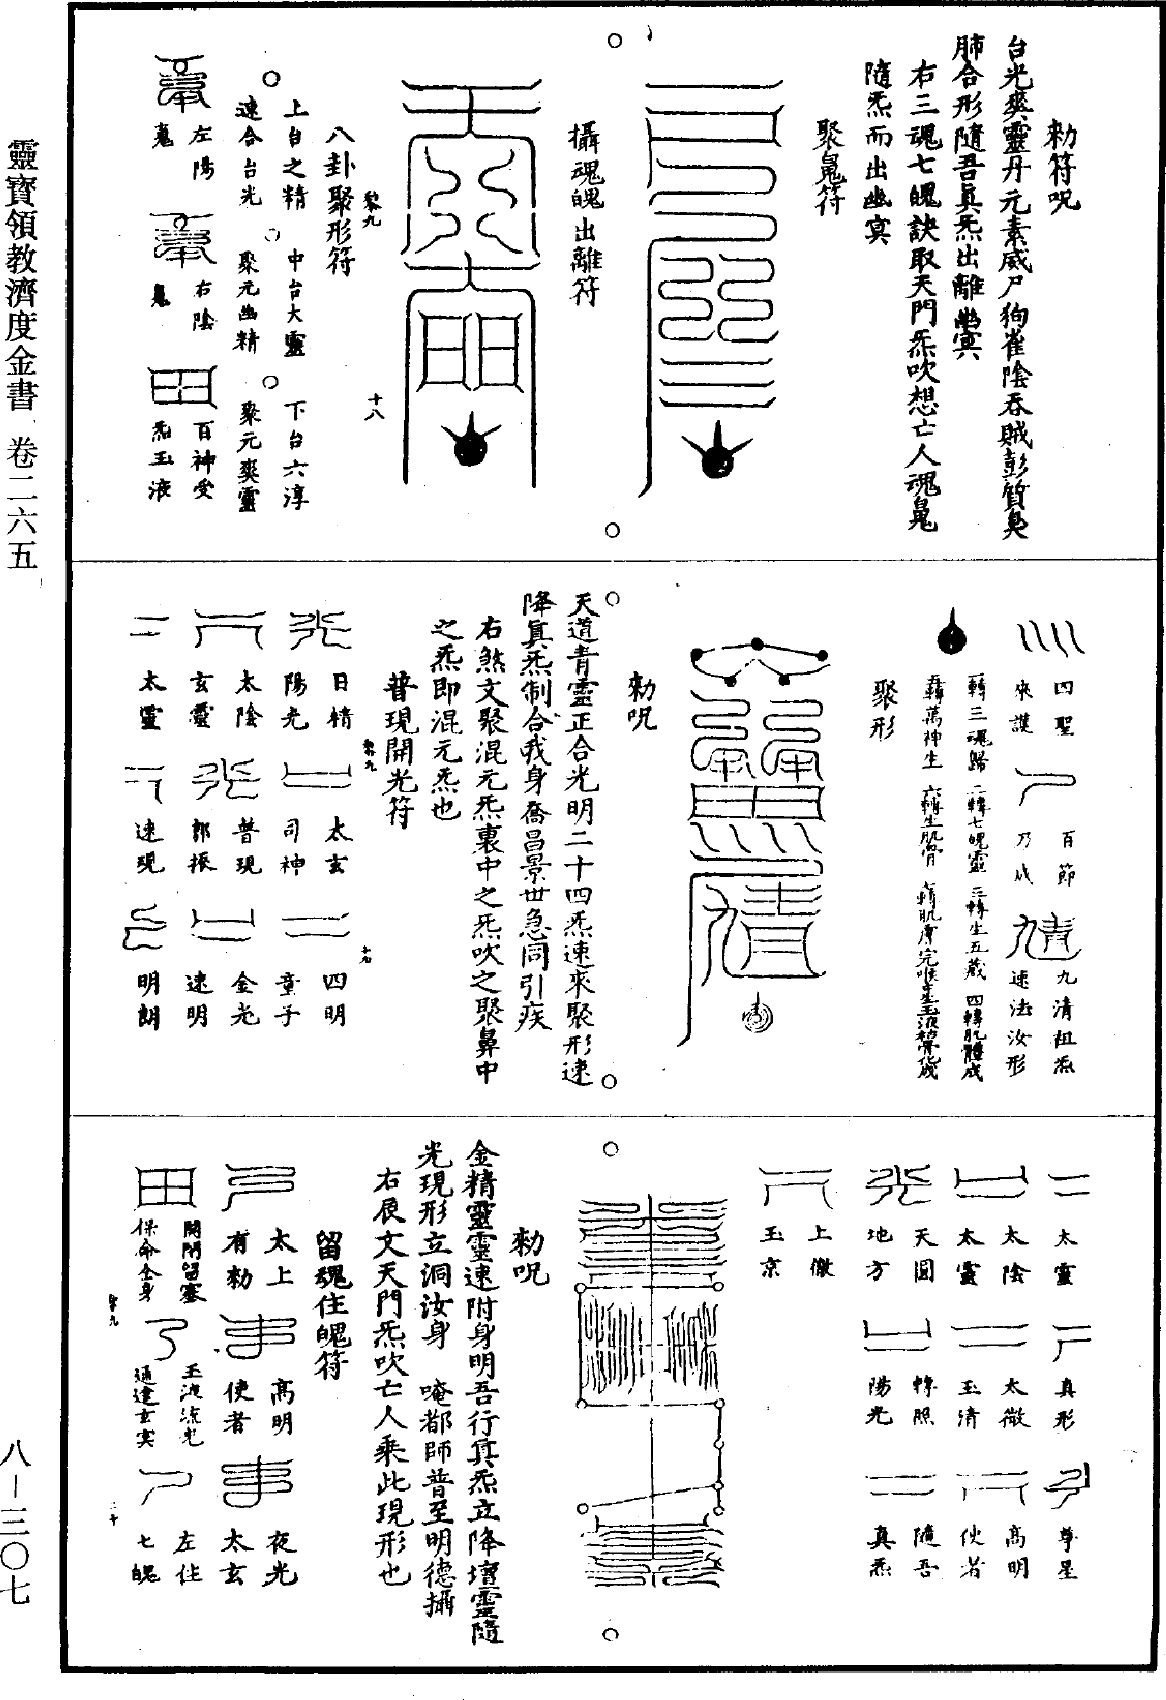 勑符呪
台光爽靈丹元素威尸狗雀陰吞賊彭質臭
肺合形隨吾真炁出離幽冥
右三魂七魄訣取天門炁吹想亡人魂鬼
隨炁而出幽冥
聚鬼符
攝魂魄出離符
八卦聚形符
上台之精
速合台光
中台大靈
聚元幽精
下台六淳
聚元爽靈
十八
左陽
右陰
百神受
炁玉液
四聖
來護
百節
乃成
九清祖炁
速法汝形
一轉三魂歸 二轉七魄靈 三轉生五藏 四轉肌體成
五轉萬神生 六轉生肌骨
聚形
勑呪
天道青靈正合光明二十四炁速來聚形速
降真炁制合我身喬昌景世急同引疾
右煞文聚混元炁裏中之炁吹之聚鼻中
之炁即混元炁也
普現開光符
日精
陽光
太玄
司神
四明
童子
太陰
玄靈
普現
郭振
金光
速明
太靈
速現
明朗
太靈
真形
尊星
太陰
太靈
太微
玉清
高明
使者
天圓
地方
轉照
陽光
隨吾
真炁
上徹
玉京
勑呪
金精靈靈速附身明吾行真炁立降壇靈隨
光現形立洞汝身 唵都師普至明德攝
右辰文天門炁吹亡人乘此現形也
留魂住魄符
太上
有勑
高明
使者
夜光
太玄
開閉留塞
保命全身
玉液流光
通達玄冥
左住
七魄
二十
靈寶領教濟度金書 卷二六五
八-三〇七